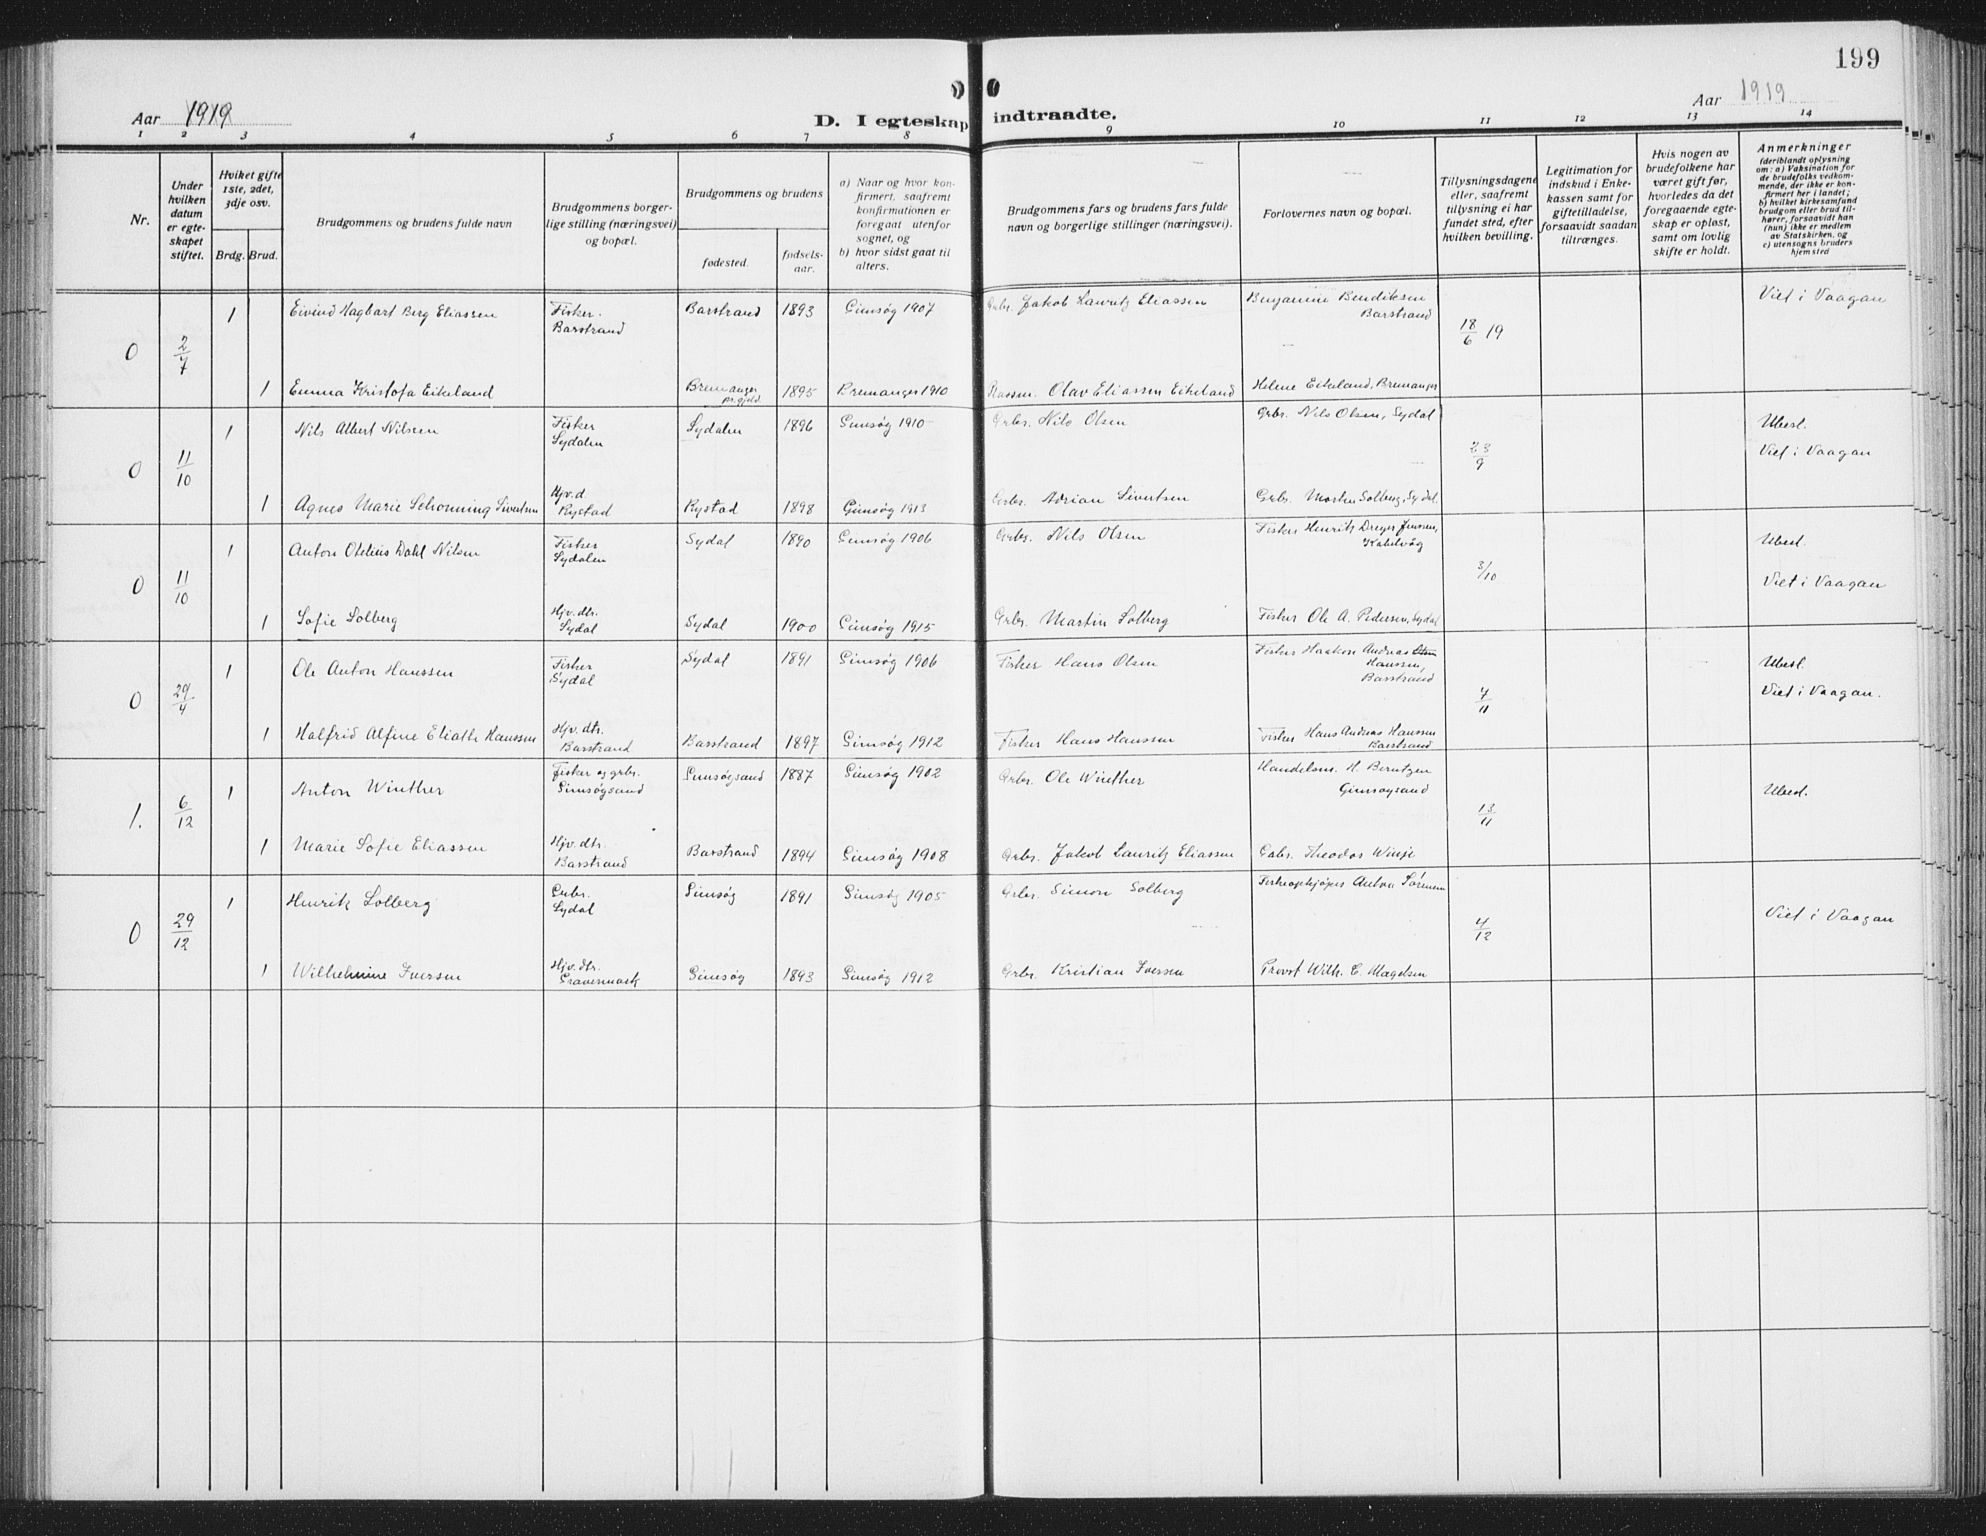 199
Aar 1919
Aar 1919
D. I egteskap indtraadte.
1 2 3 4 5 6 7 8 9 10 11 12 13 14
Nr.
Under hvilken datum er egteskapet stiftet.
Hviket gifte 1ste, 2det, 3dje osv.
Brdg. Brud.
Brudgommens og brudens fulde navn
Brudgommens borgerlige stilling (næringsvei) og bopæl.
Brudgommens og brudens
fødested.
fødselsaar.
a) Naar og hvor konfirmert, saafremt konfirmationen er foregaat utenfor sognet, og
b) hvor sidst gaat til alters.
Brudgommens fars og brudens fars fulde navn og borgerlige stillinger (næringsvei).
Forlovernes navn og bopæl.
Tillysningsdagene eller, saafremt tillysning ei har fundet sted, efter hvilken bevilling.
Legitimation for indskud i Enkekassen samt for giftetilladelse, forsaavidt saadan tiltrænges.
Hvis nogen av brudefolkene har været gift før, hvorledes da det foregaaende egteskap er opløst, samt om lovlig skifte er holdt.
Anmerkninger
(deriblandt oplysning om: a) Vaksination for de brudefolks vedkommende, der ikke er konfirmert her i landet; b) hvilket kirkesamfund brudgom eller brud tilhører, forsaavidt han (hun) ikke er medlem av Statskirken, og c) utensogns bruders hjemsted
0 2/7 1 Eivind Hagbart Berg Eliassen Fisker. Barstrand Barstrand 1893 Gimsøg 1907 Grbr. Jakob Lauritz Eliassen Benjamine Bendiksen Barstrand 18/6 19 Viet i Vaagan
1 Emma Kristofa Eikeland Bremanger pr.gjeld 1895 Bremanger 1910 Olav Eliassen Eikeland Helene Eikeland, Bremanger
0 11/10 1 Nils Albert Nilsen Fisker Sydalen Sydalen 1896 Gimsøg 1910 Grbr. Nils Olsen Grbr. Nils Olsen, Sydal 23/9 Ubesl. Viet i Vaagan
1 Agnes Marie Schønning Sivertsen Hjv.d. Rystad Rystad 1898 Gimsøg 1913 Grbr. Adrian Sivertsen Grbr. Morten Solberg, Sydal.
0 11/10 1 Anton Oldius Dahl Nilsen Fisker Sydalen Sydal 1890 Gimsøg 1906 Grbr. Nils Olsen Fisker Henrik Dreyer Jenssen, Kabelvåg 3/10 Ubesl. Viet i Vaagan
1 Sofie Solberg Hjv. dtr. Sydal Sydal 1900 Gimsøg 1915 Grbr. Martin Solberg Fisker Ole A. Pedersen, Sydal
0 29/4 1 Ole Anton Hanssen Fisker Sydal Sydal 1891 Gimsøg 1906 Fisker Hans Olsen Fisker Haakon Andreas Hanssen, Barstrand 7/11 Ubesl. Viet i Vaagan.
1 Halfrid Alfine Hanssen Hjv. dtr. Barstrand Barstrand 1897 Gimsøg 1912 Fisker Hans Hanssen Fisker Hans Andreas Hanssen Barstrand
1. 6/12 1 Anton Winther Fisker og grbr. Gimsøgsand Gimsøgsand 1887 Gimsøg 1902 Grbr. Ole Winther Handelsm. H. Berntzen Gimsøysand 13/11 Ubesl.
1 Marie Sofie Eliassen Hjv. dtr. Barstrand Barstrand 1894 Gimsøg 1908 Grbr. Jakob Lauritz Eliassen Theodor Winje
0 29/12 1 Henrik Solberg Grbr. Sydal Gimsøg 1891 Gimsøg 1905 Grbr. Simon Solberg Fiskeopkjøper Anton Sørensen 4/12 Viet i Vaagan
1 Wilhelmine Iversen Hjv. dtr. Gravermark Gimsøg 1893 Gimsøg 1912 Grbr. Kristian Iversen Provst Wilh. E. Magelsen